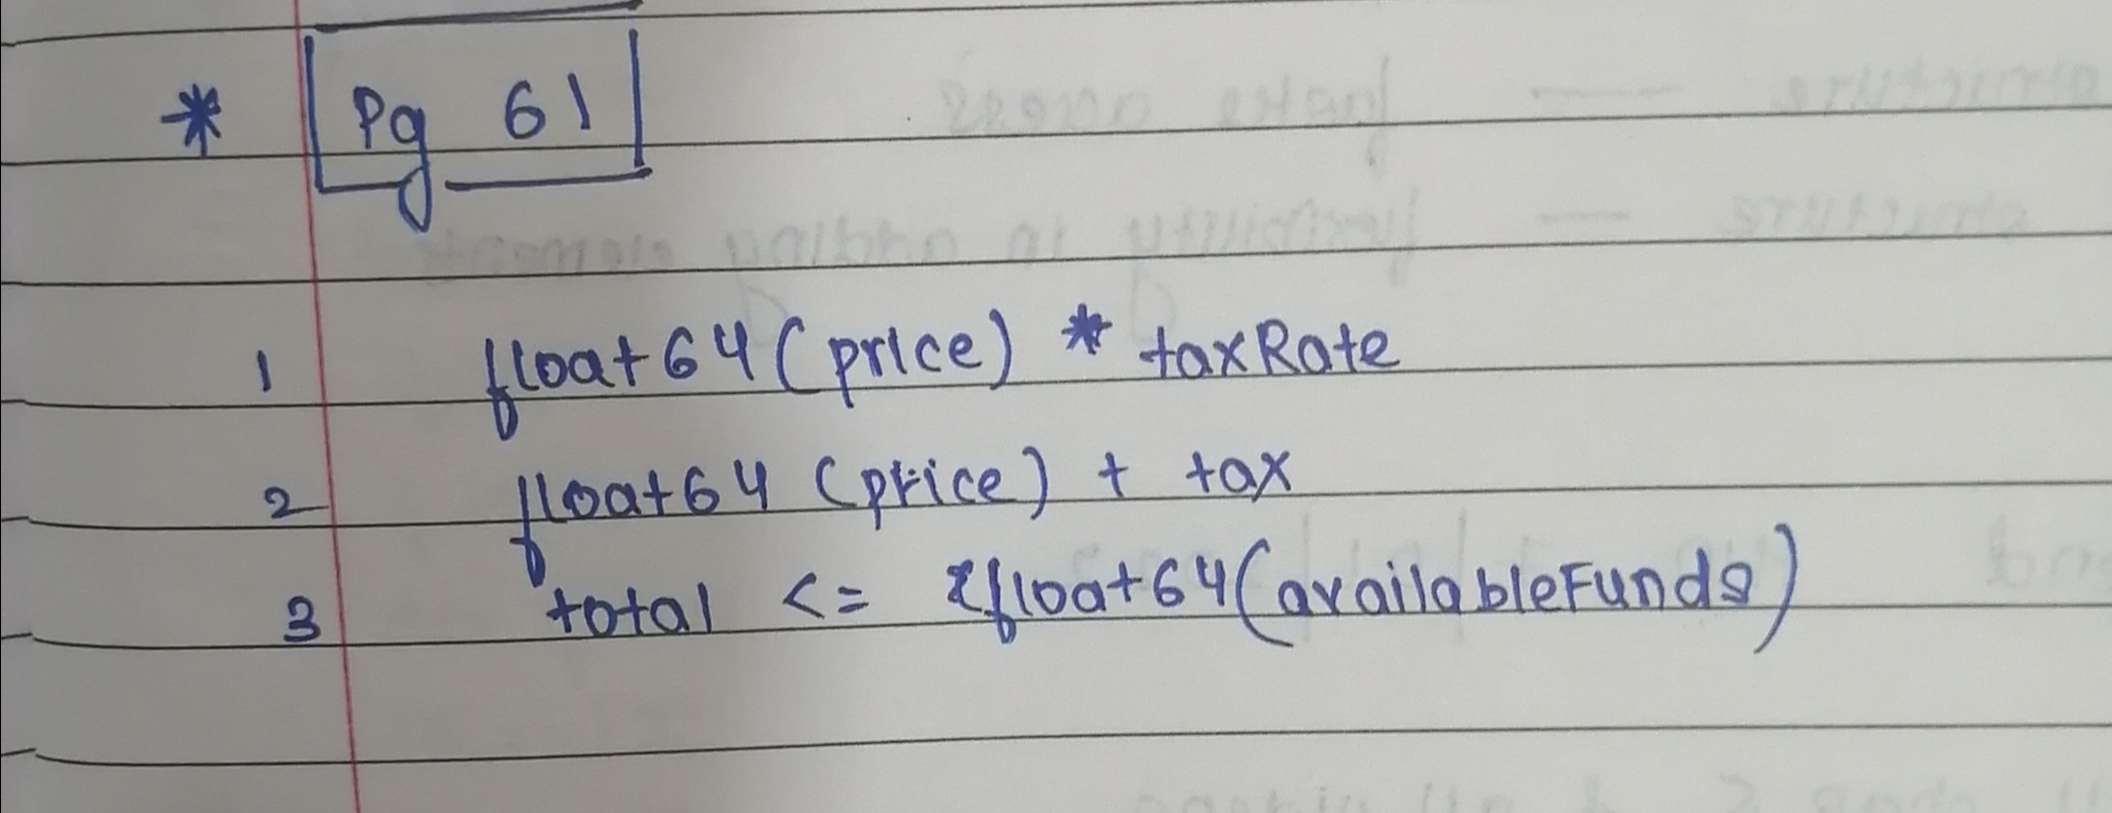 * Pg 61
1 float64(price) * taxRate
2 float64 (price) + tax
3 total <= float64(availableFunds)